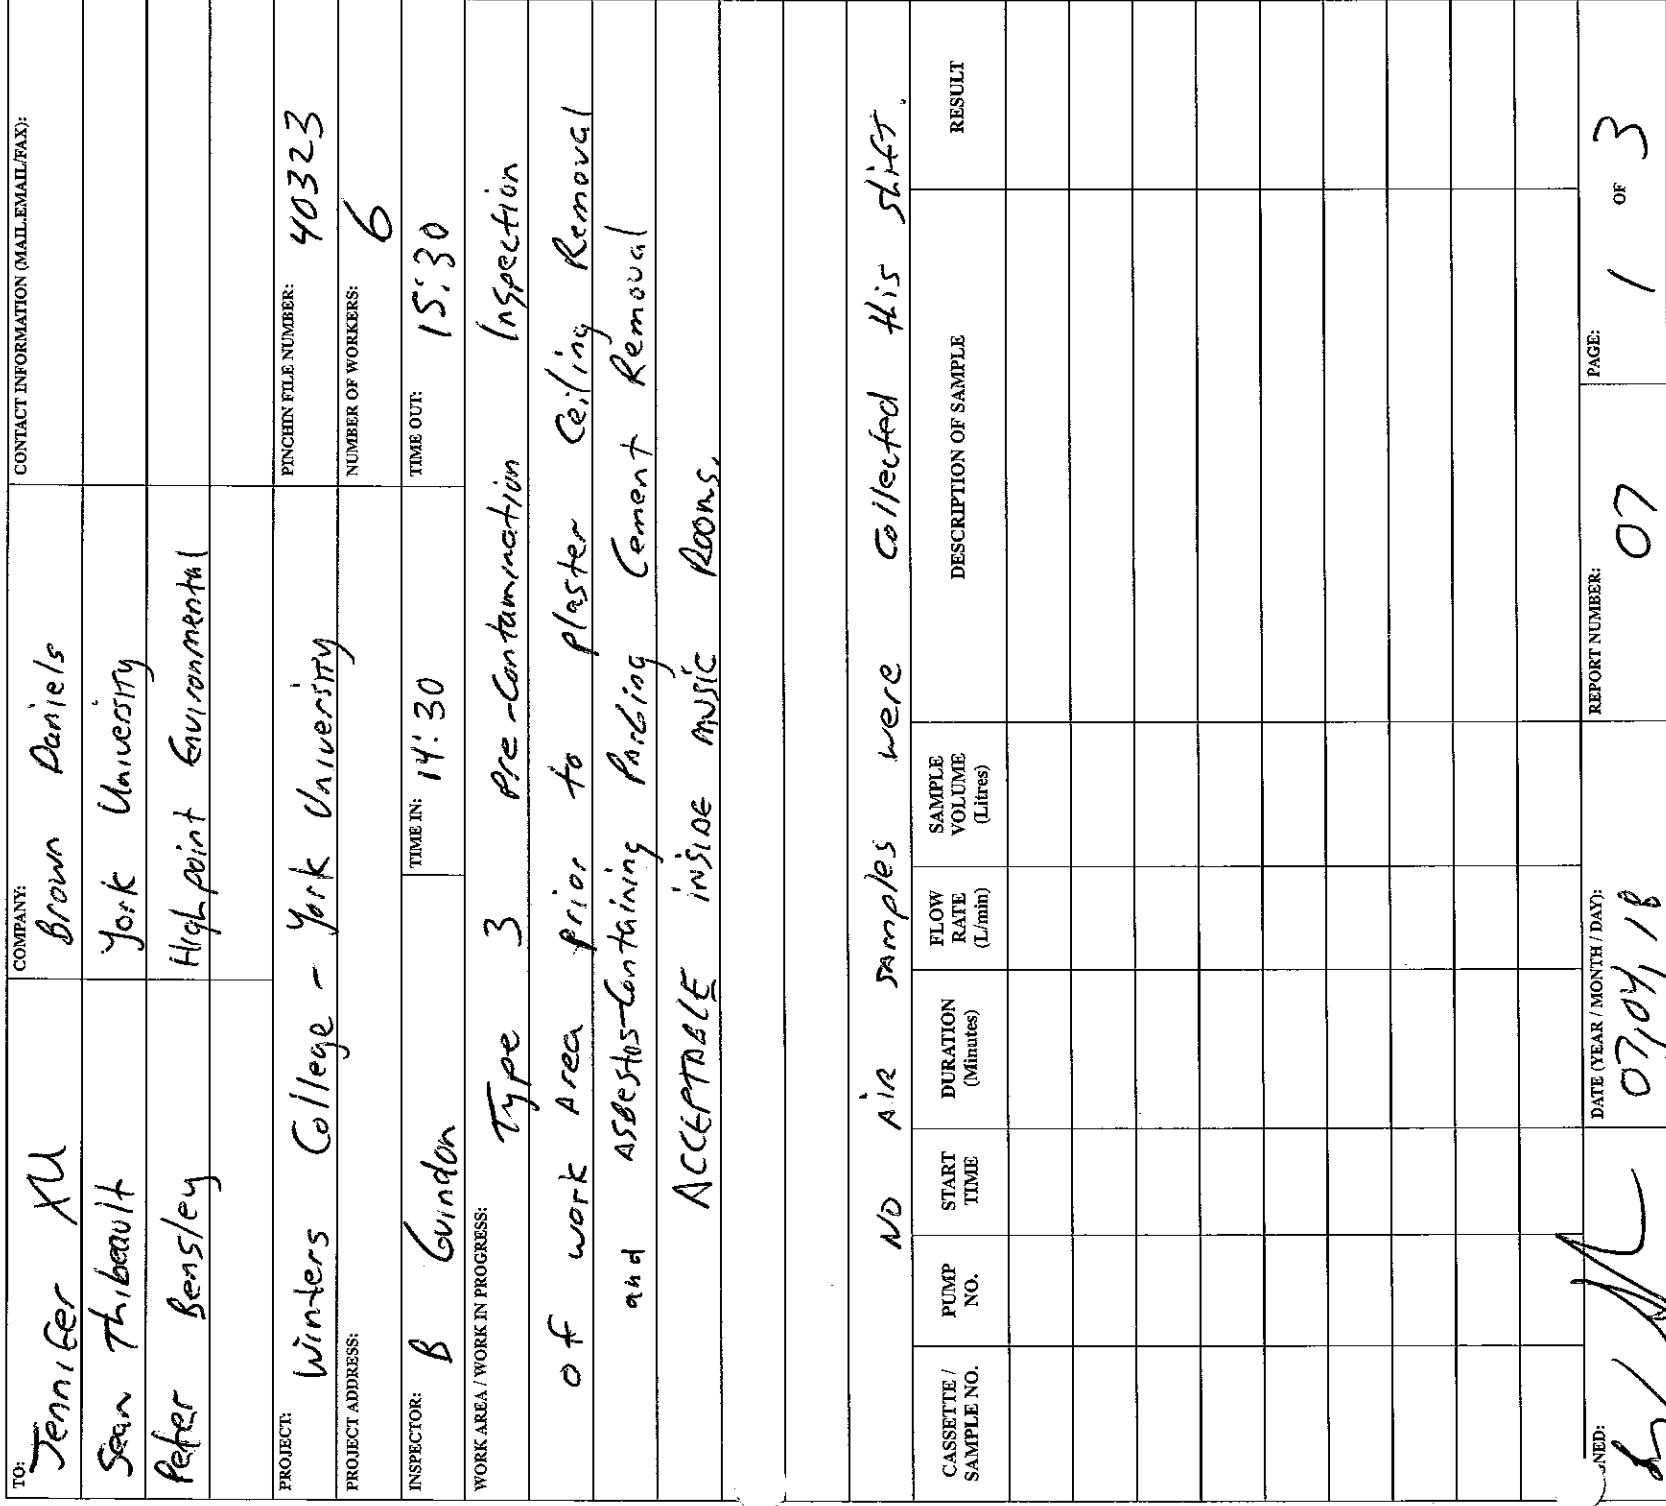 TO: COMPANY: CONTACT INFORMATION (MAIL,EMAIL/FAX):
Jennifer XU Brown Daniels
Sean Thibeault York University
Peter Bensley Highpoint Environmental
PROJECT: Winters College - York University PINCHIN FILE NUMBER: 40323
PROJECT ADDRESS: NUMBER OF WORKERS: 6
INSPECTOR: B Guindon TIME IN: 14:30 TIME OUT: 15:30
WORK AREA / WORK IN PROGRESS: Type 3 Pre-Contamination Inspection
of work Area prior to plaster Ceiling Removal
and ASBestos-Containing Parging Cement Removal
ACCEPTABLE inSIDE MUSIC Rooms.
NO AIR samples were Collected this shift.
CASSETTE / SAMPLE NO. PUMP NO. START TIME DURATION (Minutes) FLOW RATE (L/min) SAMPLE VOLUME (Litres) DESCRIPTION OF SAMPLE RESULT
NED: DATE (YEAR / MONTH / DAY): 07,04,18 REPORT NUMBER: 07 PAGE: 1 OF 3